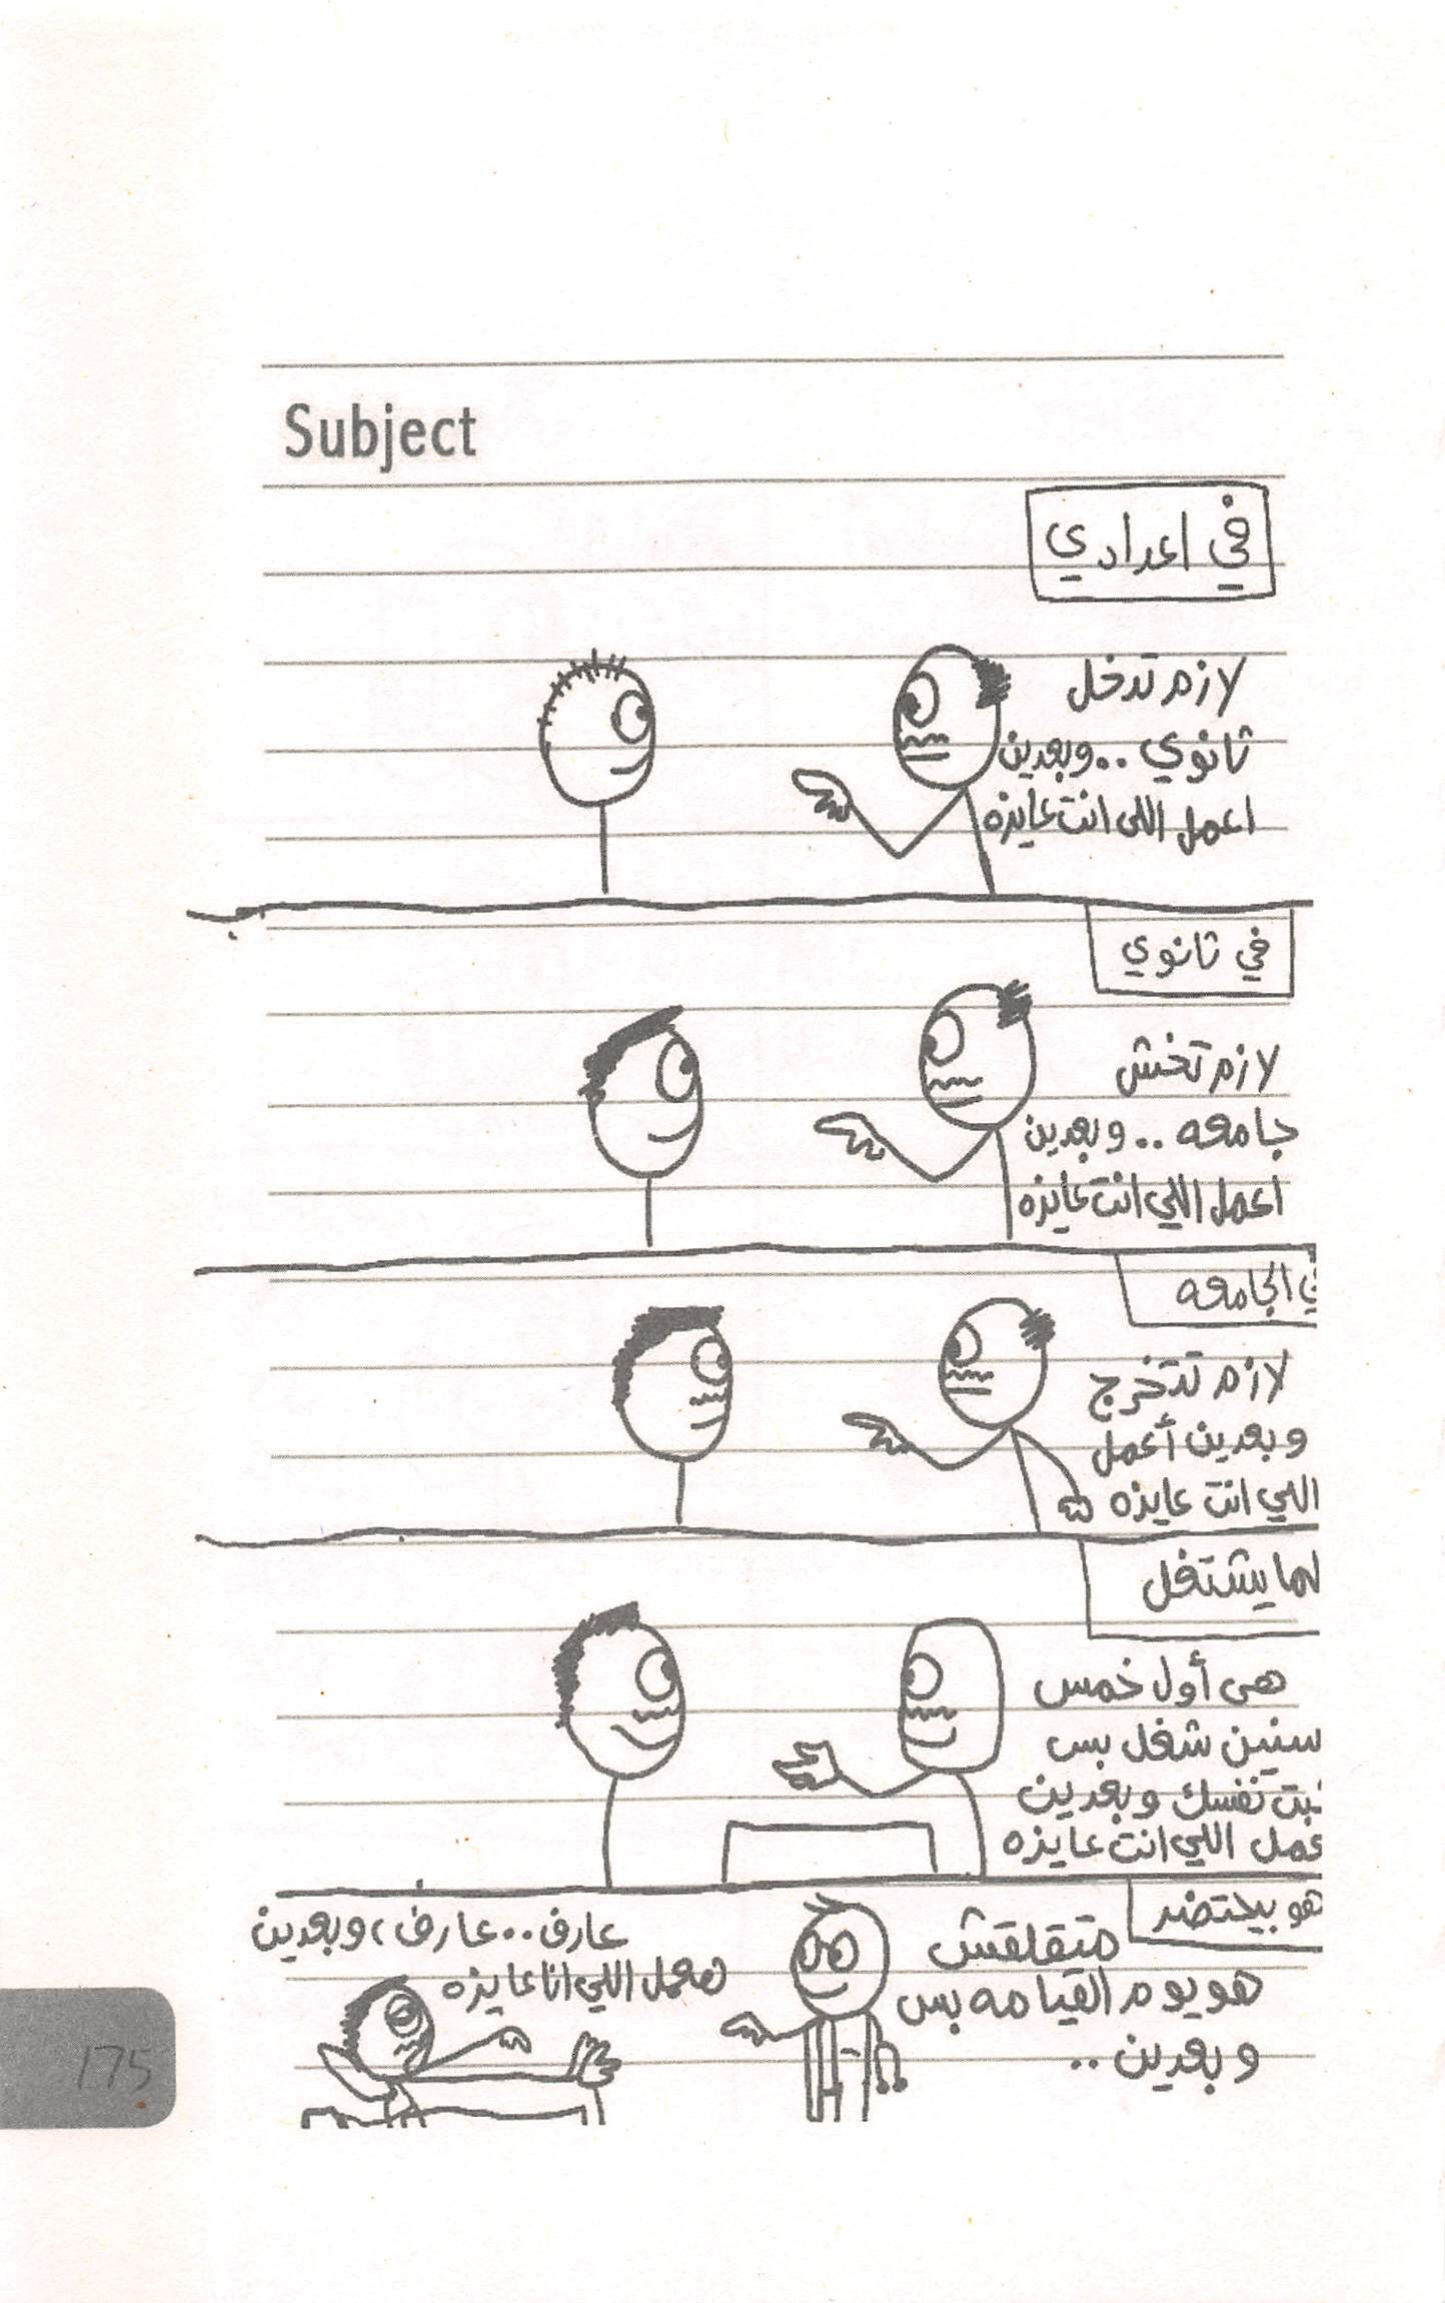 Subject
في اعدادي
لازم تدخل
ثانوي .. وبعدين
اعمل اللي انت عايزه
في ثانوي
لازم تخش
جامعه .. وبعدين
اعمل اللي انت عايزه
الجامعه
لازم تتخرج
وبعدين أعمل
اللي انت عايزه
لما يشتغل
هي أول خمس
سنين شغل بس
نفسك وبعدين
عمل اللي انت عايزه
هو بيحتضر
متقلقش
هو يوم القيامه بس
وبعدين ..
عارف .. عارف، وبعدين
هعمل اللي انا عايزه
175